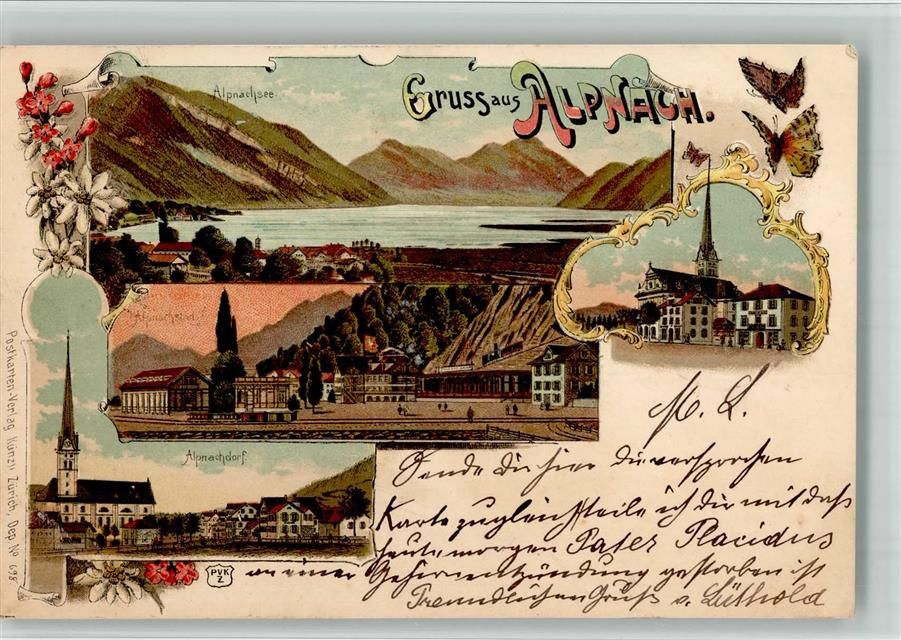 Gruss aus ALPNACH.
Alpnachsee.
Alpnachstad.
Alpnachdorf.
Postkarten-Verlag Künzli Zürich, Dep. No 698
PVK
Z
M. L.
Sende dir hier die versprochen
Karte zugleich theile ich dir mit daß
heute morgen Pater Placidus
an einer Gehirnentzündung gestorben ist
Freundlichen Gruß v. Lüthold